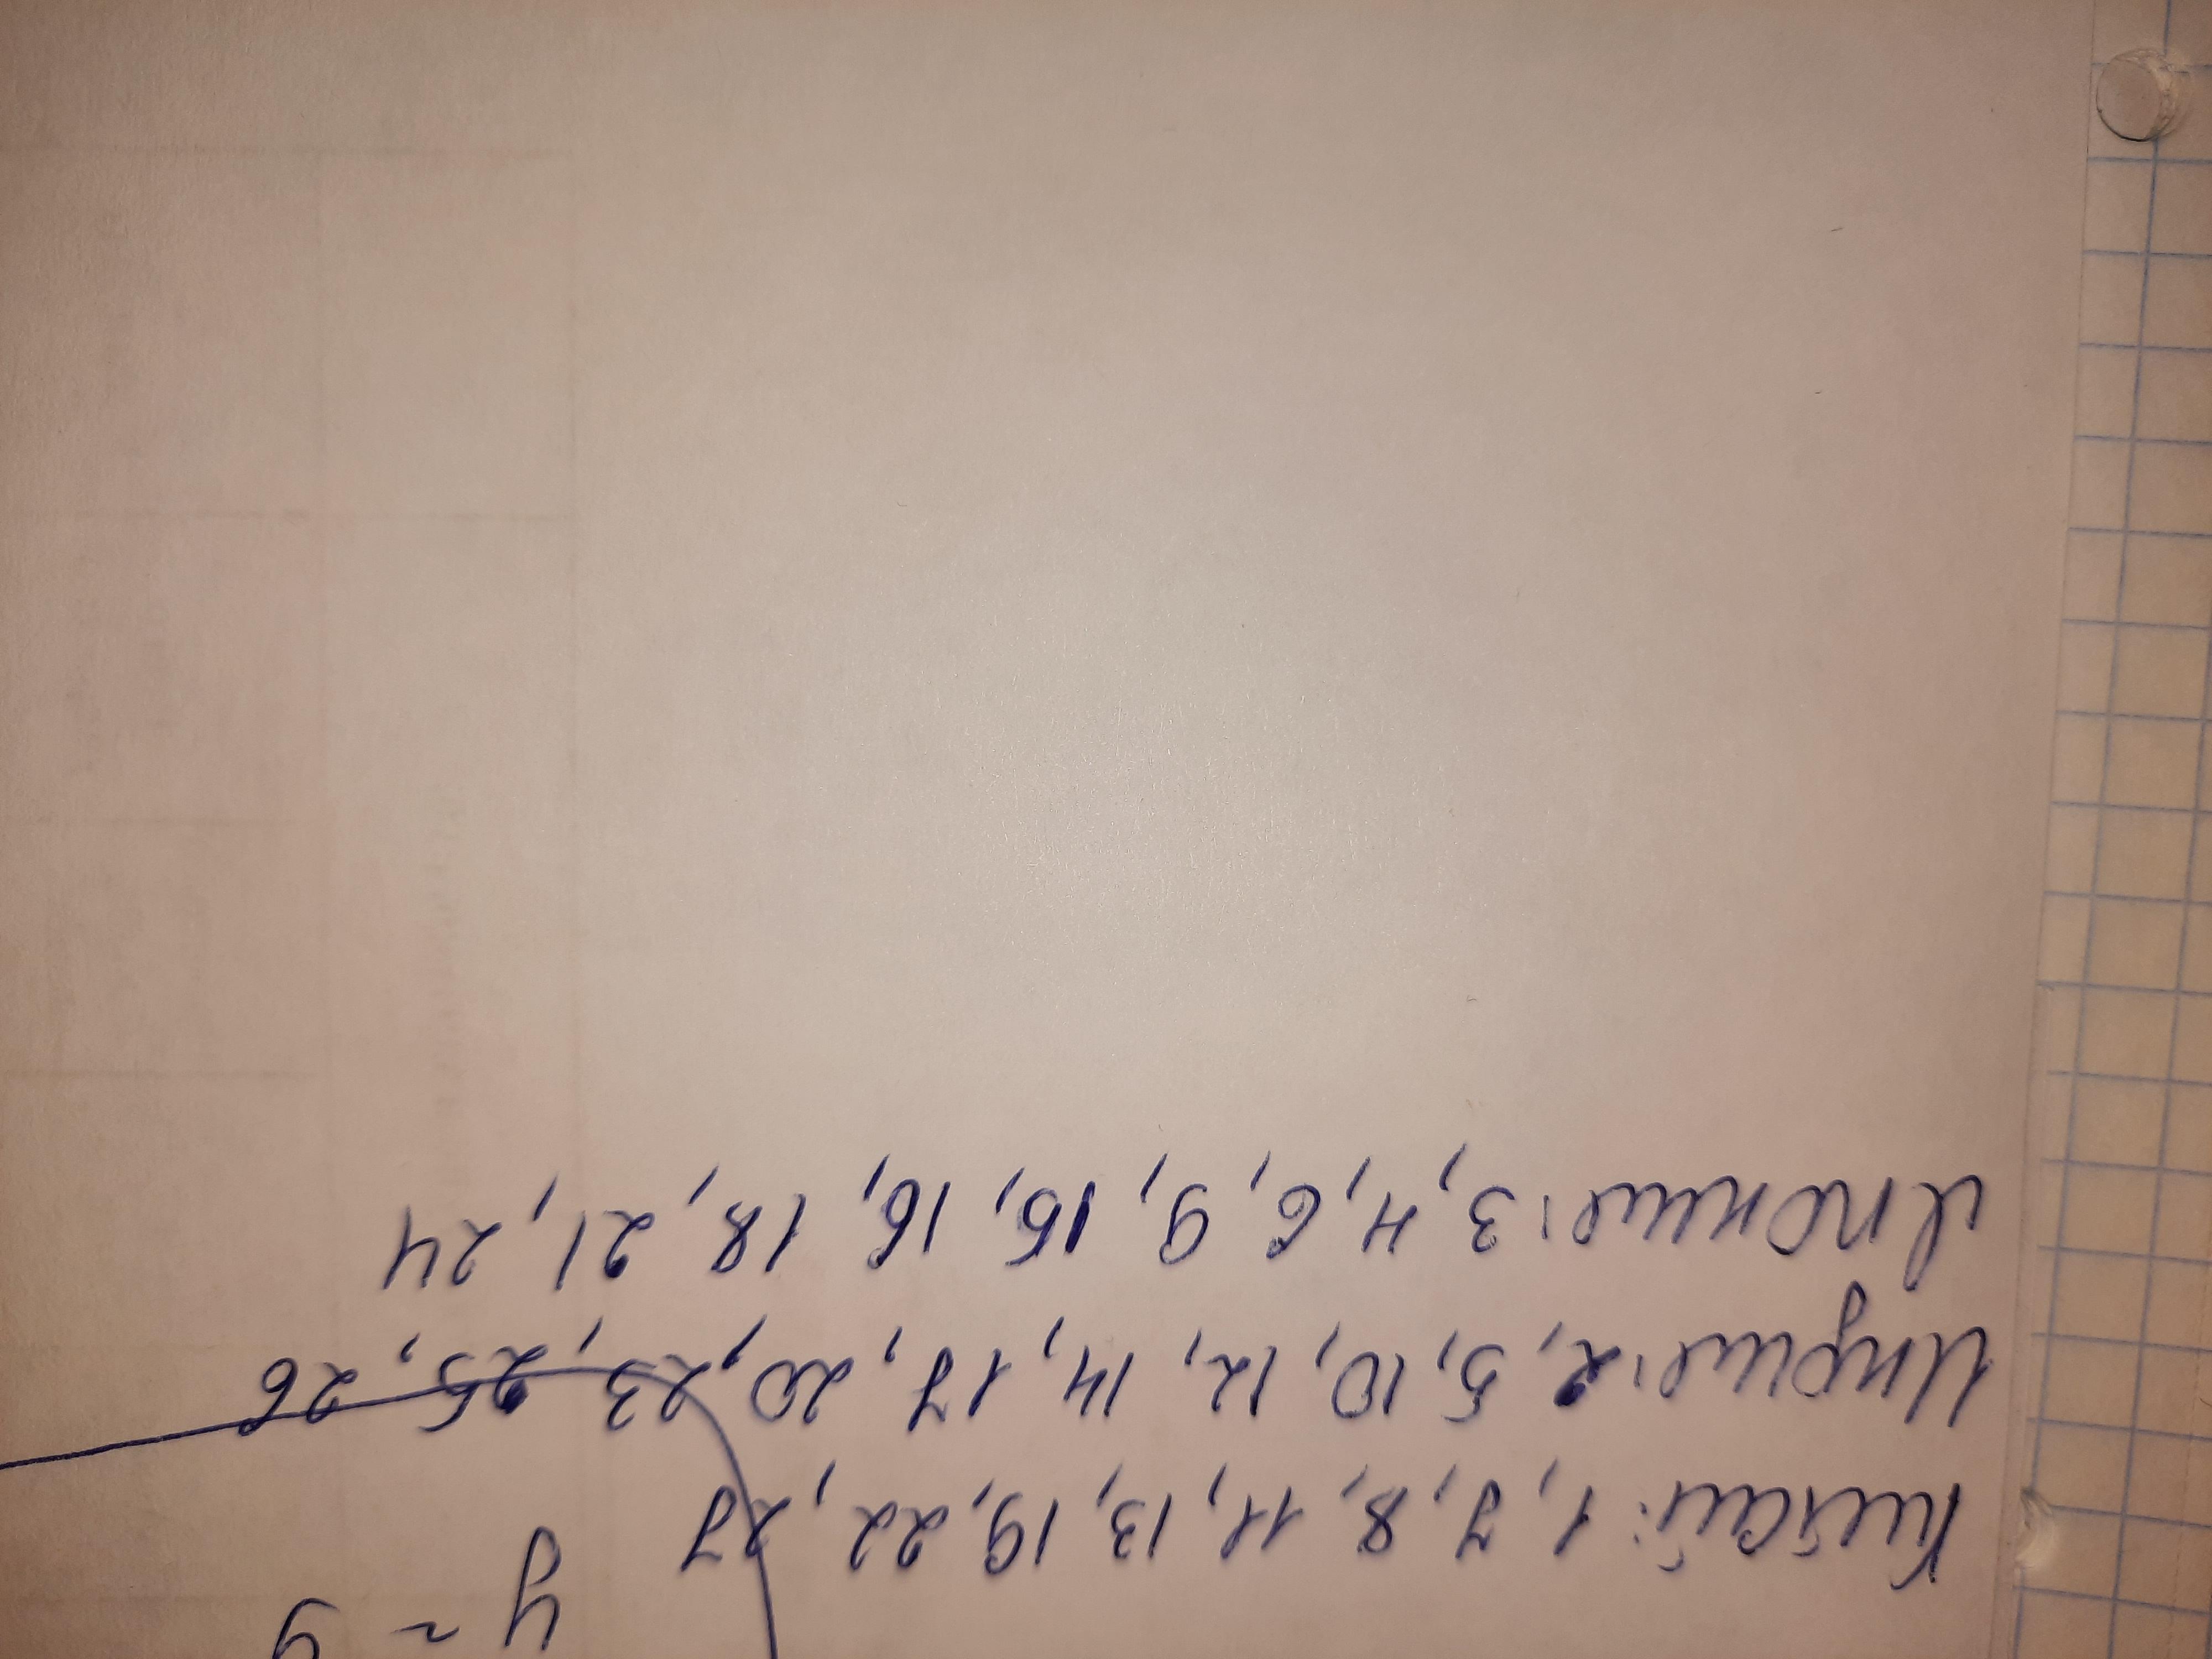 Китай: 1, 7, 8, 11, 13, 19, 22, 27
Индия: 2, 5, 10, 12, 14, 17, 20, 23, 25, 26
Япония: 3, 4, 6, 9, 15, 16, 18, 21, 24